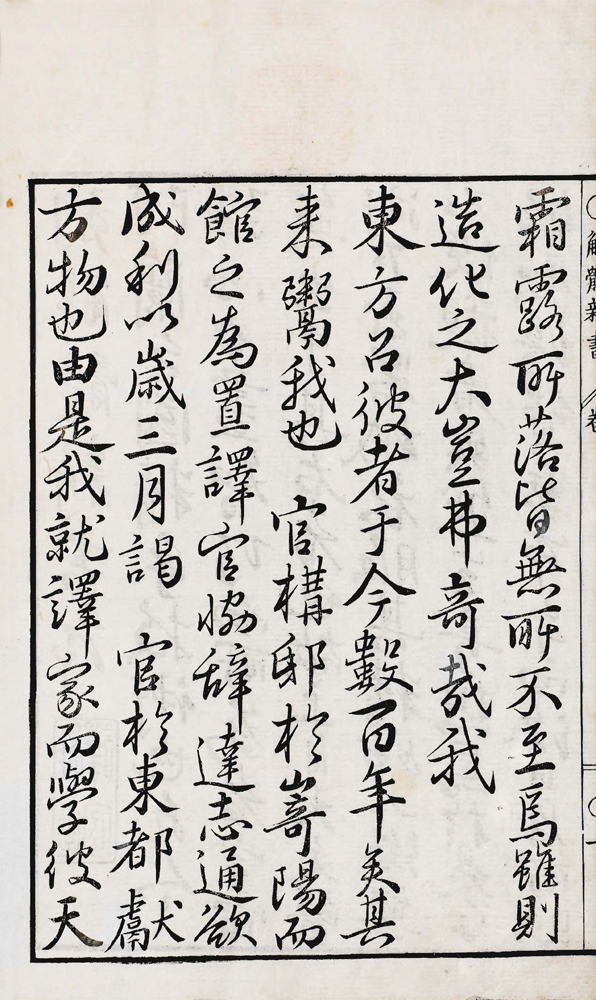 〇解體新書 卷 〇一
霜露所落皆無所不至焉雖則
造化之大豈弗奇哉我
東方召彼者于今數百年矣其
来鬻我也　官構邸於嵜陽而
館之為置譯官恊辞達志通欲
成利以歲三月謁　官於東都獻
方物也由是我就譯家而學彼天